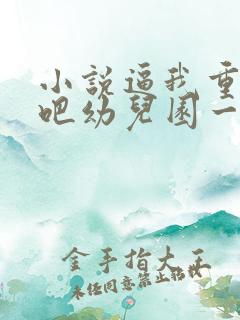 小説逼我重
吧幼兒園一
金手指大王
未经同意禁止转载